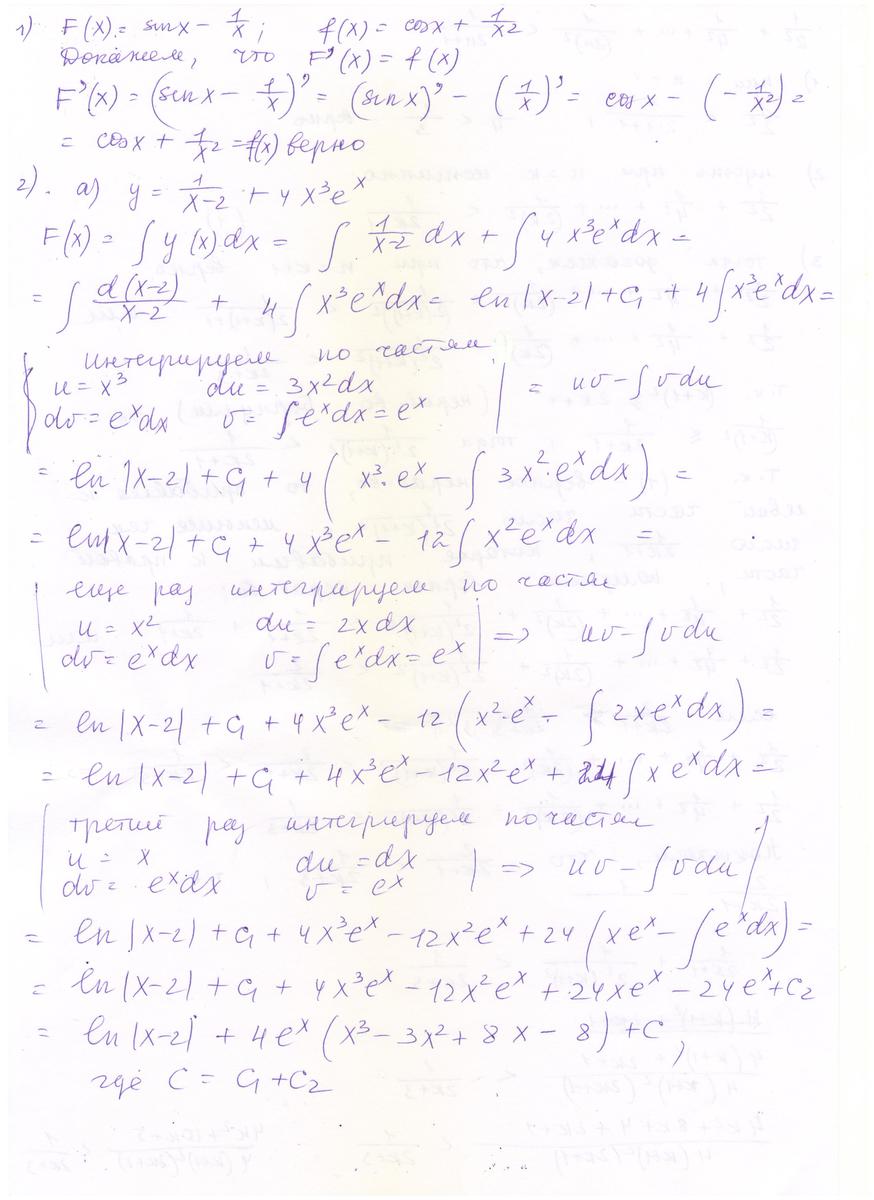 1) F(x) = sinx − 1/x; f(x) = cosx + 1/x²
Докажем, что F'(x) = f(x)
F'(x) = (sinx − 1/x)' = (sinx)' − (1/x)' = cosx − (−1/x²) =
= cosx + 1/x² = f(x) верно
2). а) y = 1/(x−2) + 4x³eˣ
F(x) = ∫ y(x)dx = ∫ 1/(x−2) dx + ∫ 4x³eˣdx =
= ∫ d(x−2)/(x−2) + 4∫ x³eˣdx = ln|x−2| + C₁ + 4∫x³eˣdx =
интегрируем по частям
u = x³ du = 3x²dx | = uv − ∫vdu
dv = eˣdx v = ∫eˣdx = eˣ
= ln|x−2| + C₁ + 4(x³·eˣ − ∫3x²·eˣdx) =
= ln|x−2| + C₁ + 4x³eˣ − 12∫x²eˣdx =
еще раз интегрируем по частям
u = x² du = 2xdx | => uv − ∫vdu
dv = eˣdx v = ∫eˣdx = eˣ
= ln|x−2| + C₁ + 4x³eˣ − 12(x²·eˣ − ∫2xeˣdx) =
= ln|x−2| + C₁ + 4x³eˣ − 12x²eˣ + 24∫xeˣdx =
третий раз интегрируем по частям
u = x du = dx | => uv − ∫vdu
dv = eˣdx v = eˣ
= ln|x−2| + C₁ + 4x³eˣ − 12x²eˣ + 24(xeˣ − ∫eˣdx) =
= ln|x−2| + C₁ + 4x³eˣ − 12x²eˣ + 24xeˣ − 24eˣ + C₂
= ln|x−2| + 4eˣ(x³ − 3x² + 8x − 8) + C,
где C = C₁ + C₂